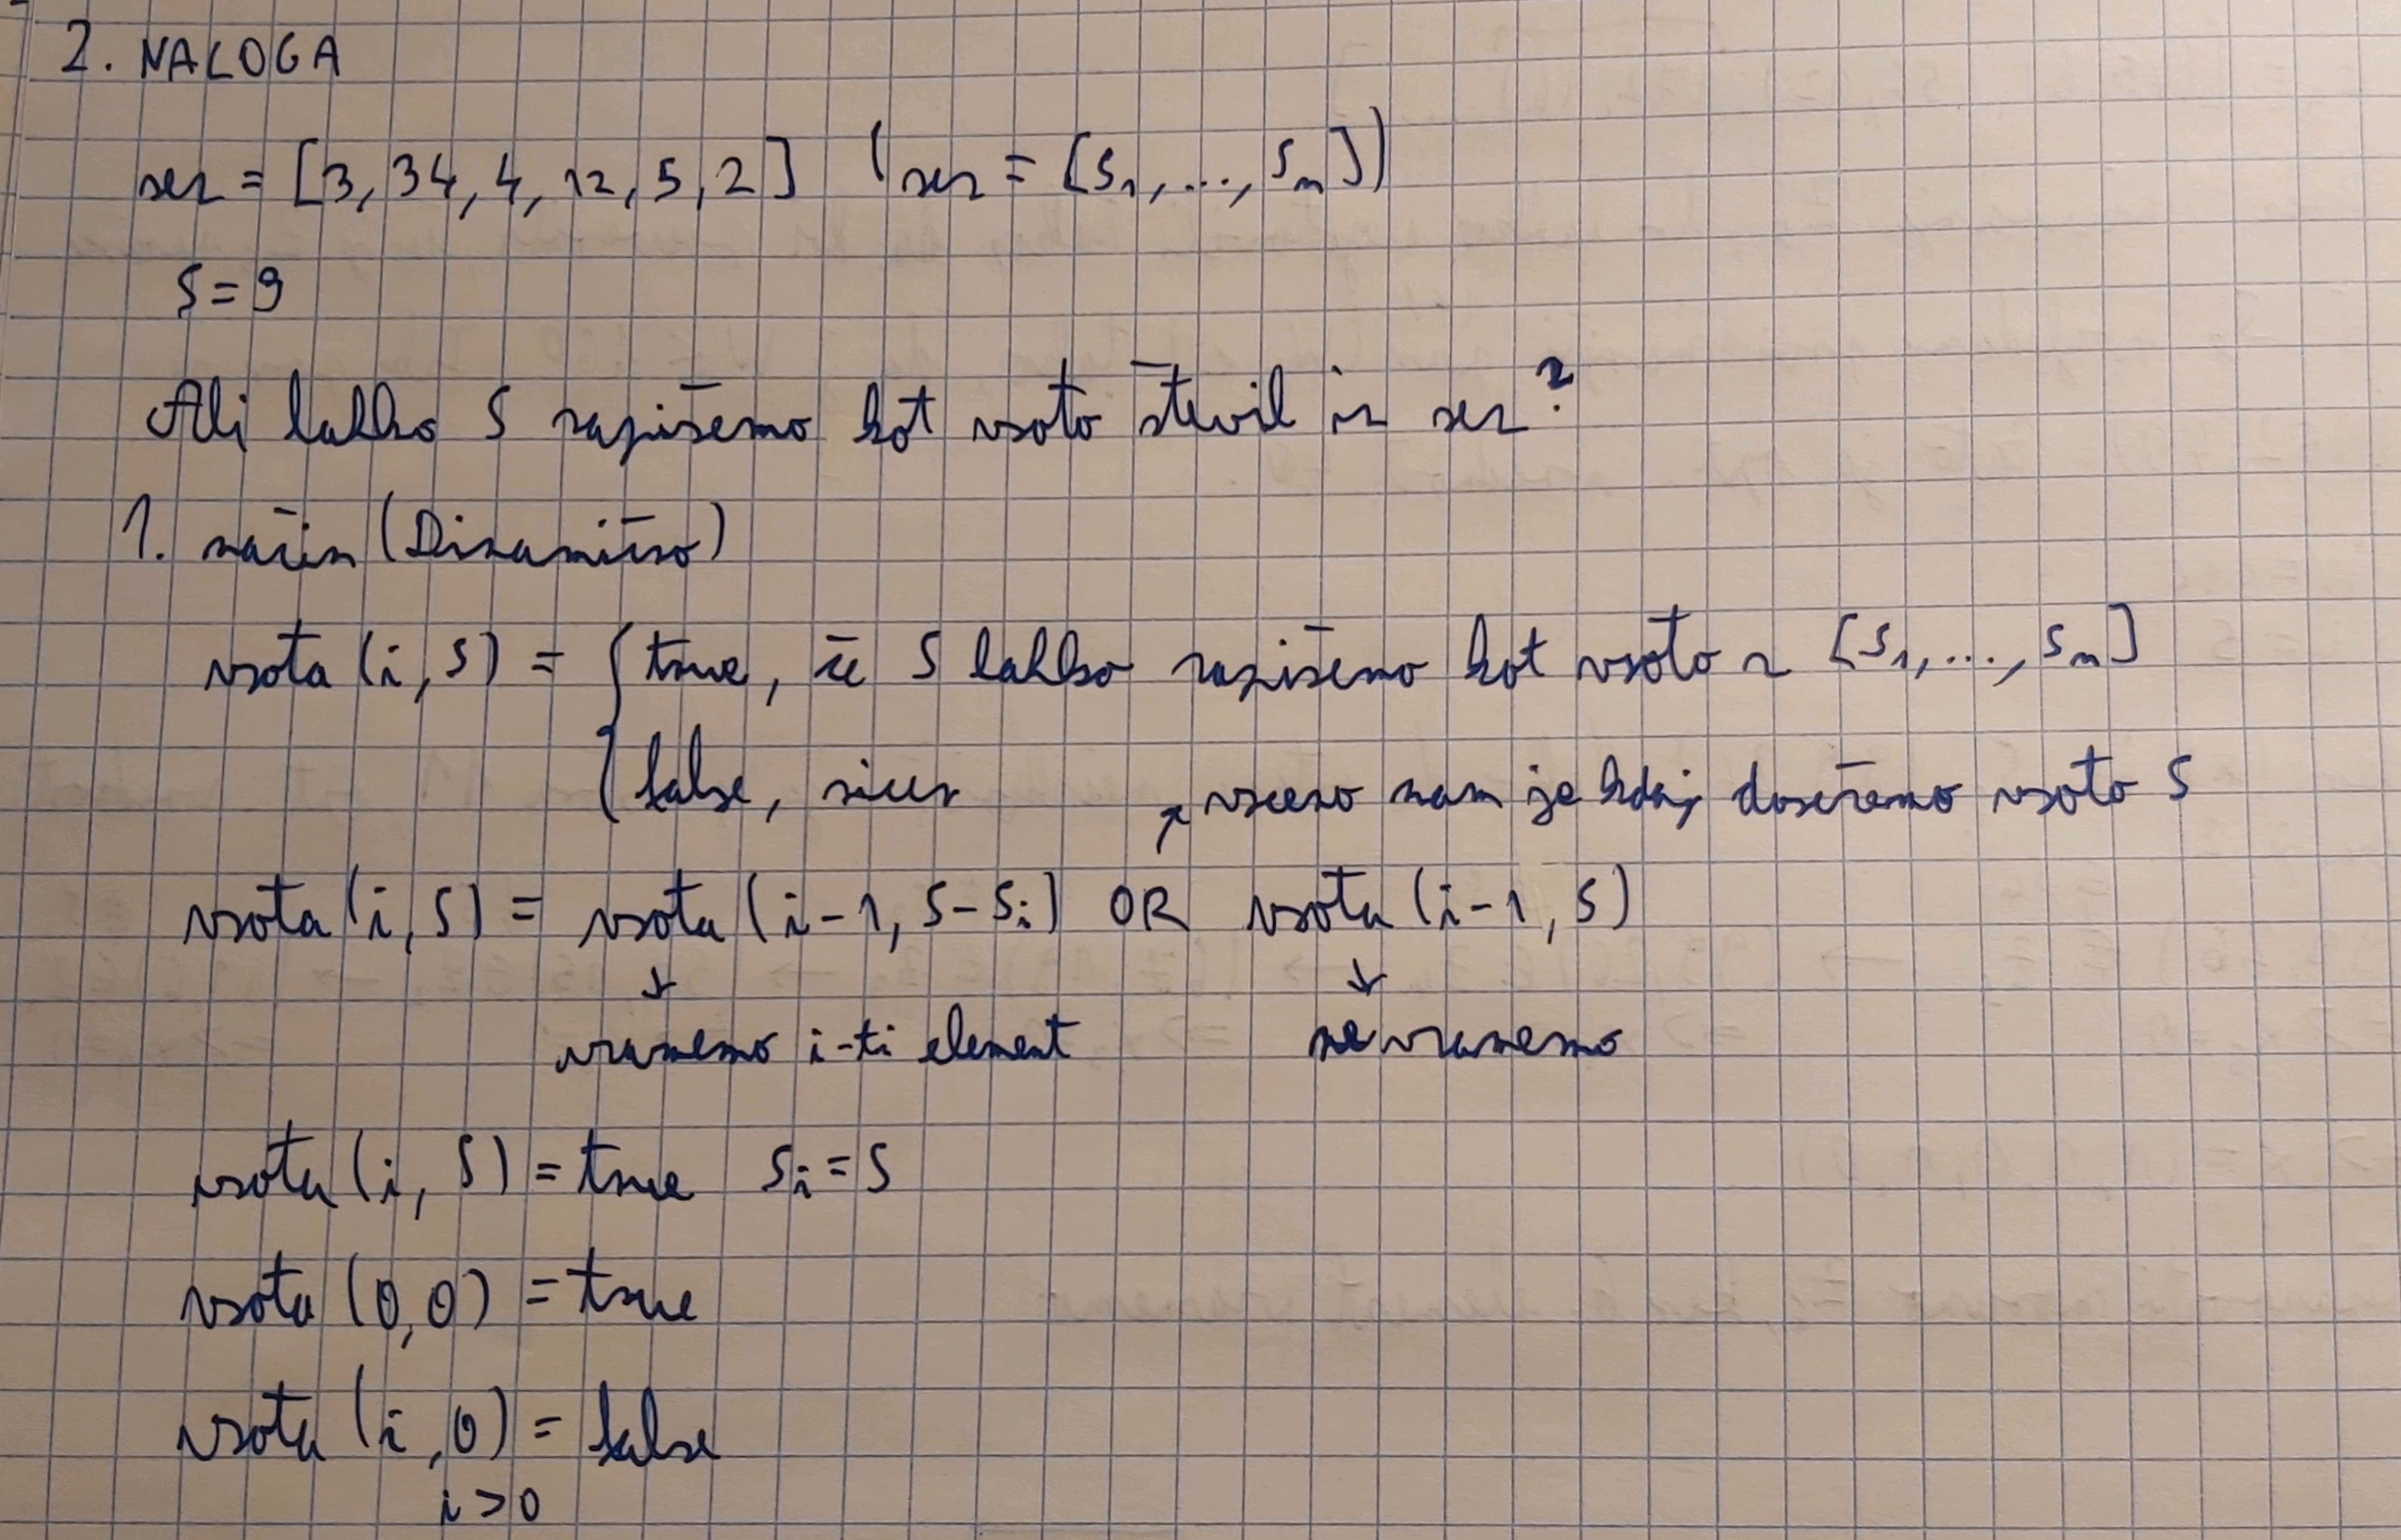 2. NALOGA
sez = [3, 34, 4, 12, 5, 2] (sez = [s₁, ..., sₙ])
S = 9
Ali lahko S zapišemo kot vsoto števil iz sez?
1. način (Dinamično)
vsota (i, S) = { true, če S lahko zapišemo kot vsoto z [s₁, ..., sₙ]
{ false, sicer
↗ vseeno nam je kdaj dosežemo vsoto S
vsota (i, S) = vsota (i-1, S-sᵢ) OR vsota (i-1, S)
↓ ↓
vzamemo i-ti element ne vzamemo
vsota (i, S) = true sᵢ = S
vsota (0,0) = true
vsota (i, 0) = false
i > 0